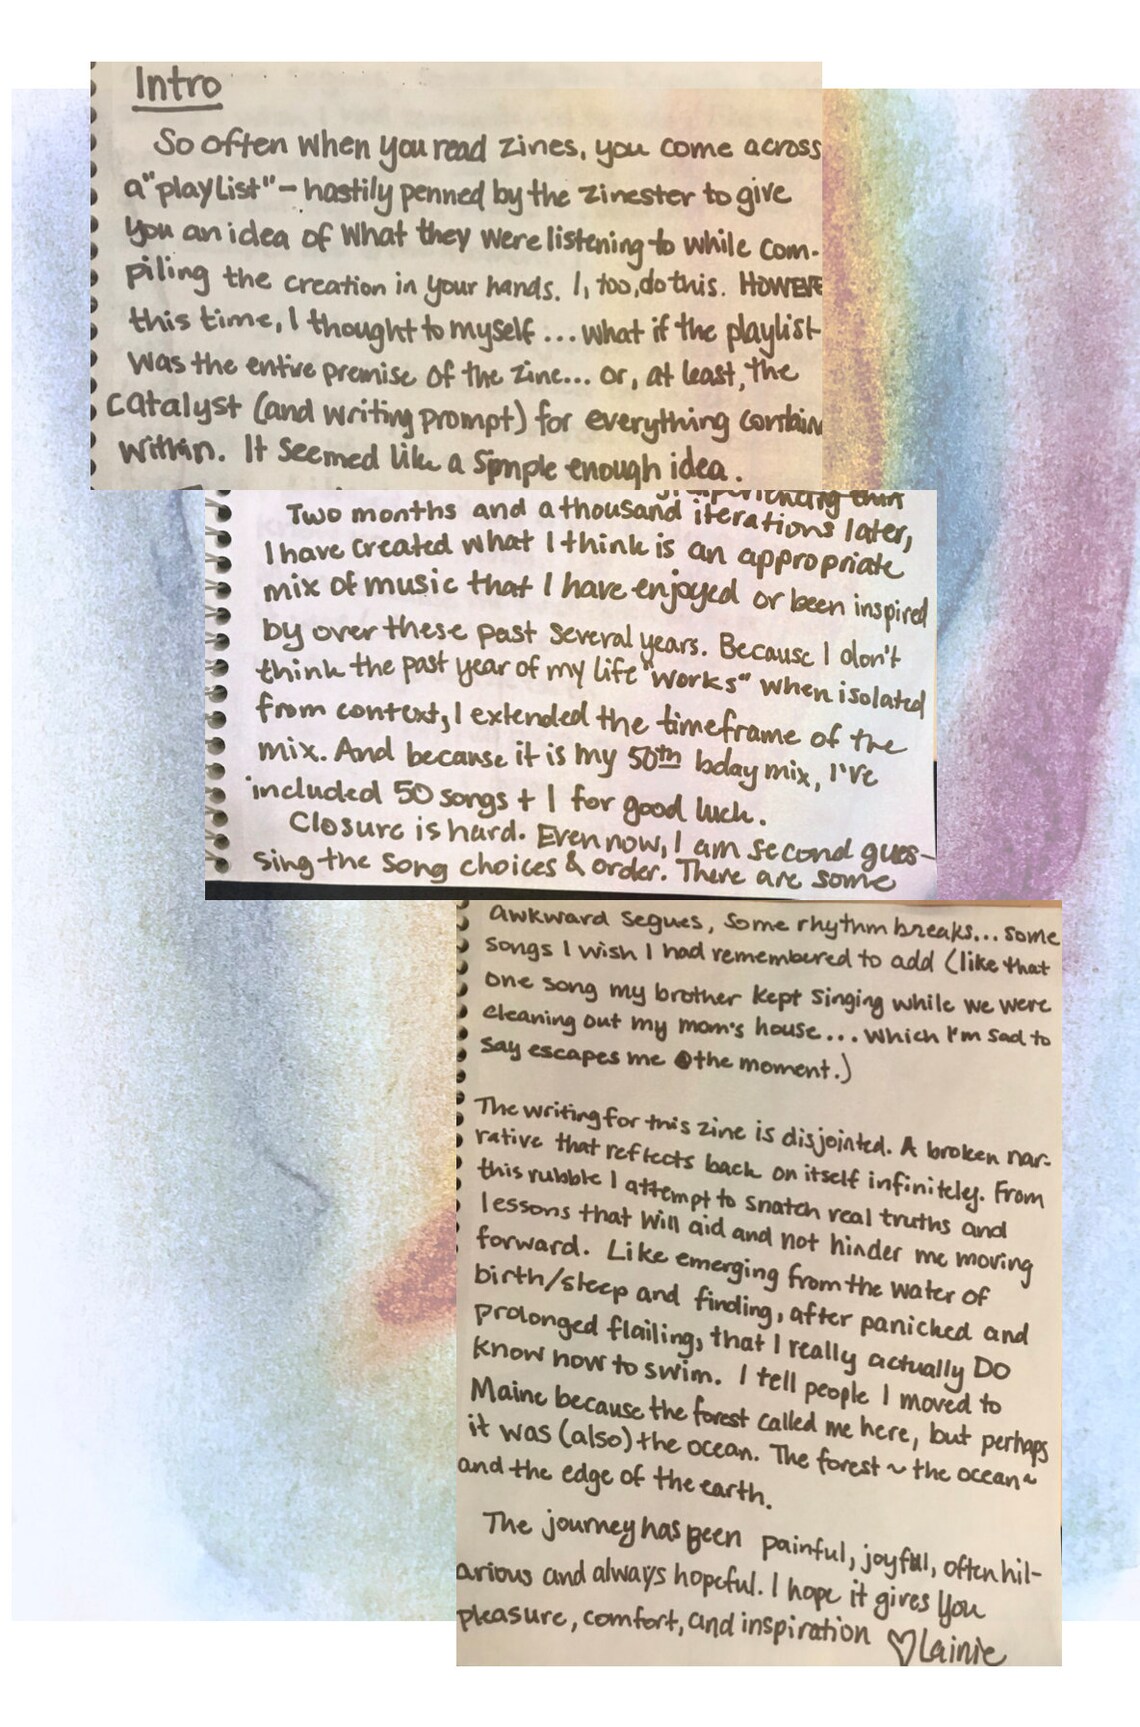 Intro
So often when you read zines, you come across
a "playlist" – hastily penned by the zinester to give
you an idea of what they were listening to while com-
piling the creation in your hands. I, too, do this. Howeve
this time, I thought to myself ... what if the playlist
was the entire premise of the zine... or, at least, the
catalyst (and writing prompt) for everything contain
within. It seemed like a simple enough idea.
Two months and a thousand iterations later,
I have created what I think is an appropriate
mix of music that I have enjoyed or been inspired
by over these past several years. Because I don't
think the past year of my life "works" when isolated
from context, I extended the timeframe of the
mix. And because it is my 50th bday mix, I've
included 50 songs + 1 for good luck.
Closure is hard. Even now, I am second gues-
sing the song choices & order. There are some
awkward segues, some rhythm breaks... some
songs I wish I had remembered to add (like that
one song my brother kept singing while we were
cleaning out my mom's house... which I'm sad to
say escapes me @ the moment.)
The writing for this zine is disjointed. A broken nar-
rative that reflects back on itself infinitely. From
this rubble I attempt to snatch real truths and
lessons that will aid and not hinder me moving
forward. Like emerging from the water of
birth/sleep and finding, after panicked and
prolonged flailing, that I really actually DO
know how to swim. I tell people I moved to
Maine because the forest called me here, but perhaps
it was (also) the ocean. The forest ~ the ocean ~
and the edge of the earth.
The journey has been painful, joyful, often hil-
arious and always hopeful. I hope it gives you
pleasure, comfort, and inspiration ♡ Lainie